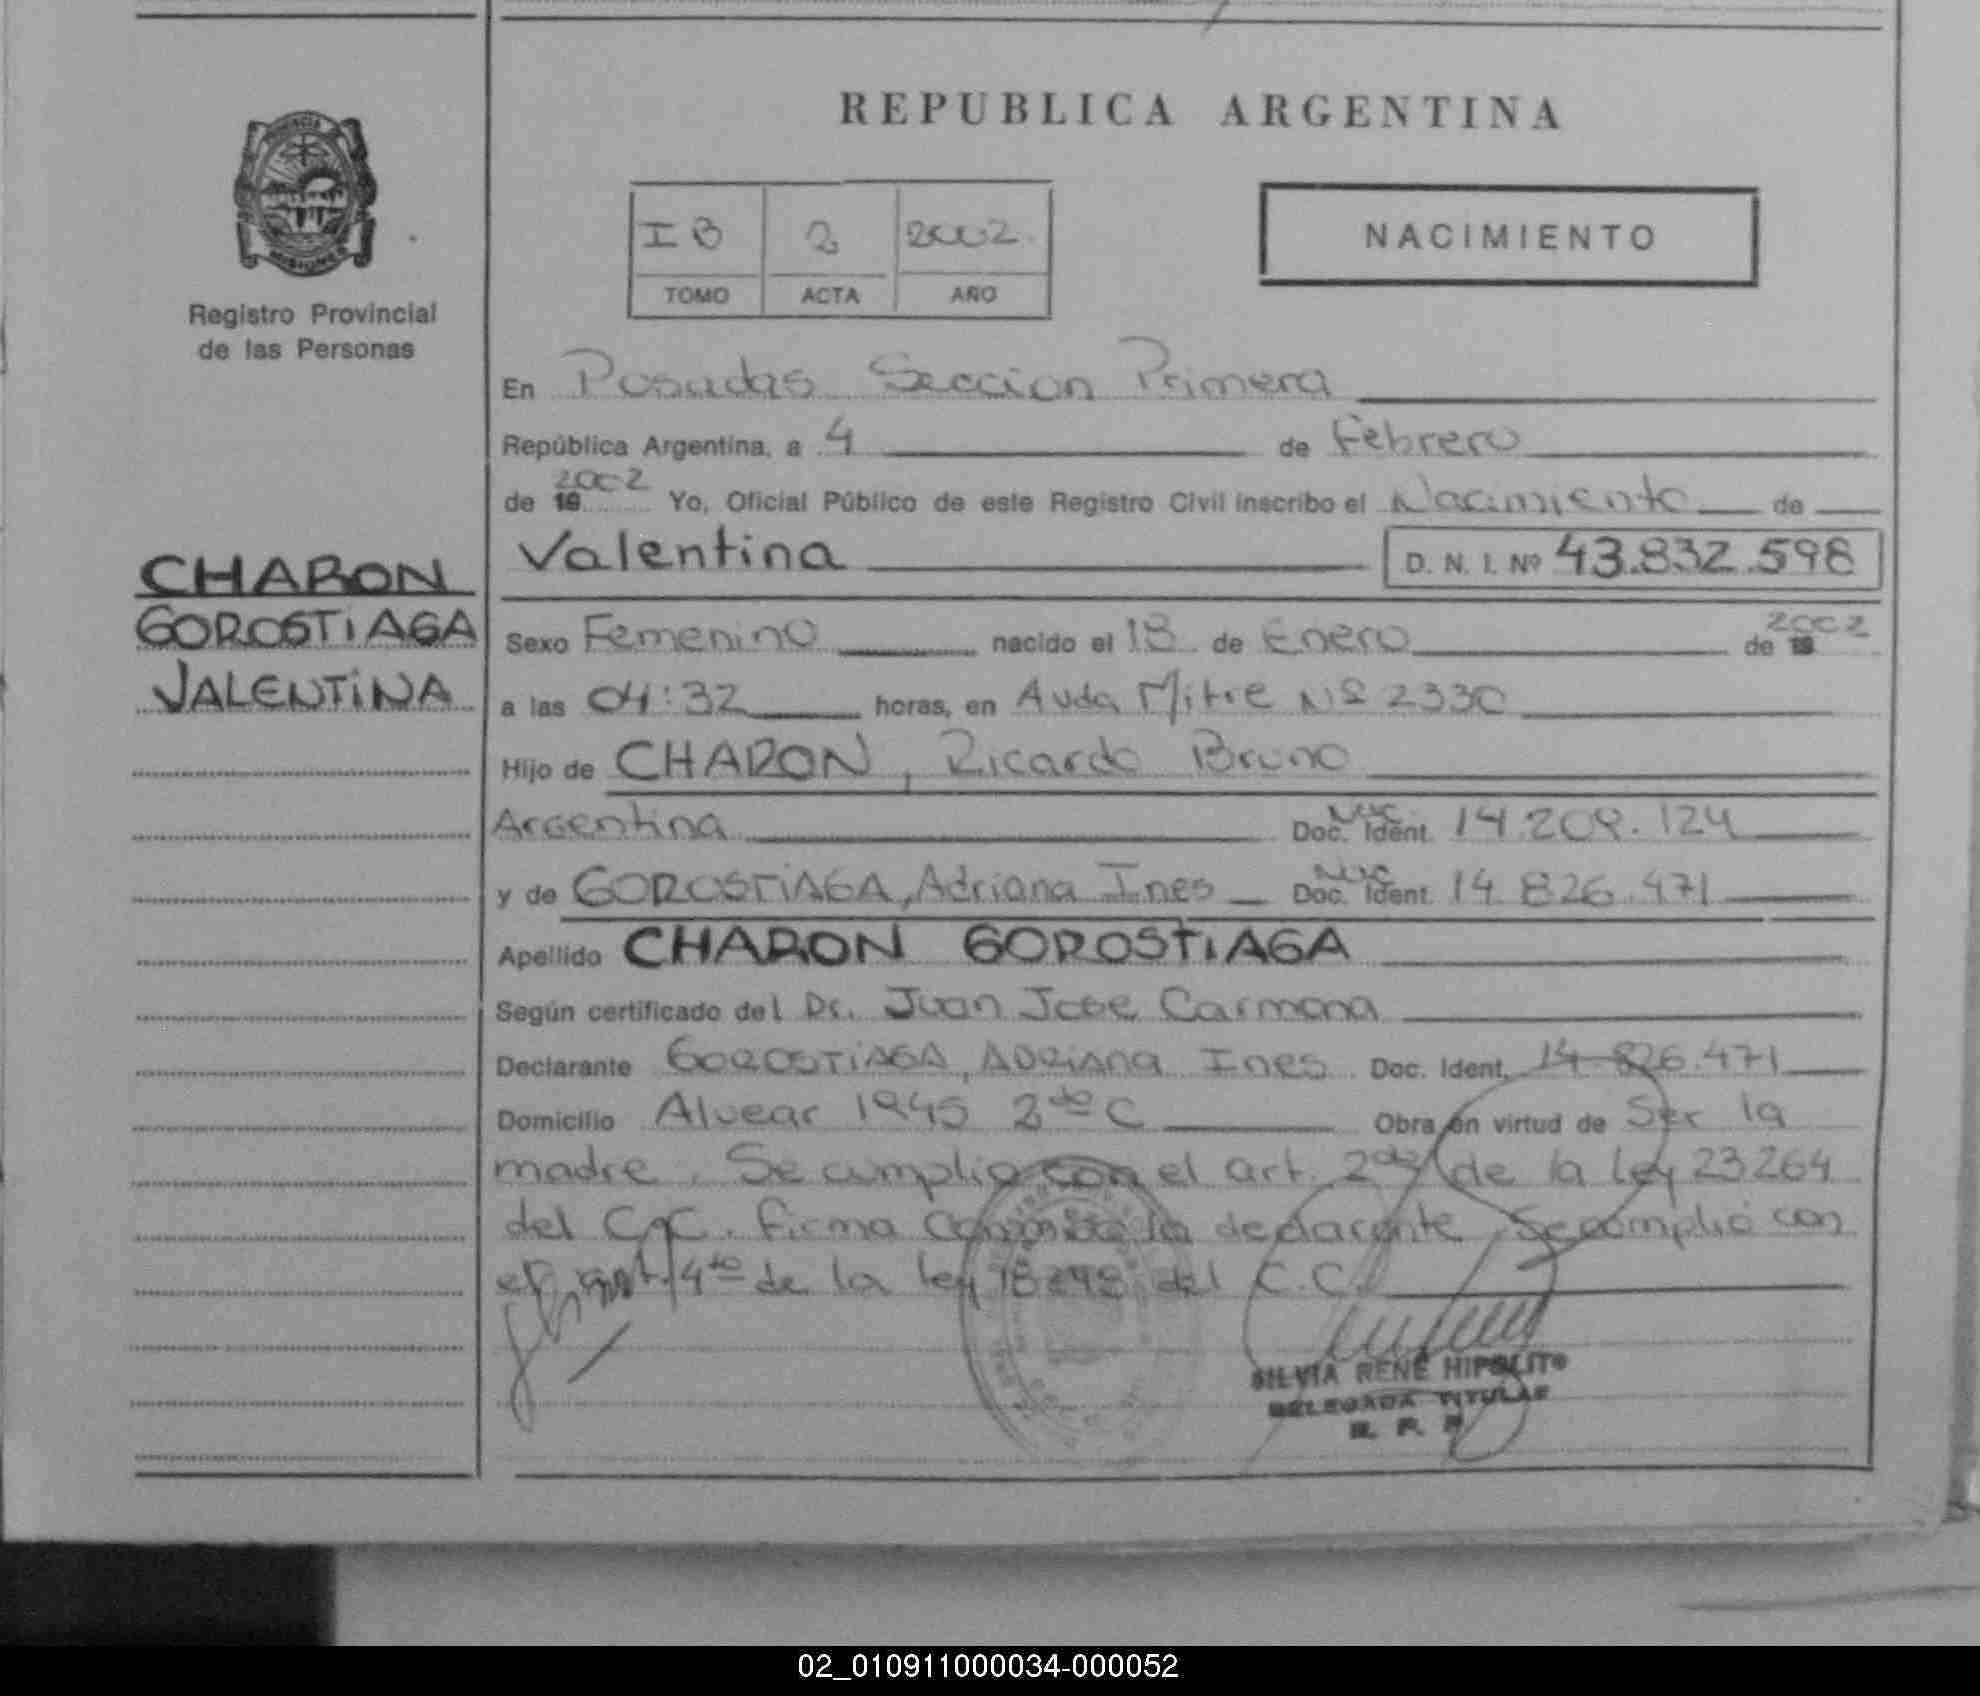 REPUBLICA ARGENTINA
PROVINCIA
MISIONES
Registro Provincial
de las Personas
IB 2 2002.
TOMO ACTA AÑO
NACIMIENTO
En Posadas Seccion Primera
República Argentina, a 4 de Febrero
de 19 2002 Yo, Oficial Público de este Registro Civil inscribo el Nacimiento de
CHARON
GOROSTIAGA
VALENTINA
Valentina D. N. I. Nº 43.832.598
Sexo Femenino nacido el 18 de Enero de 19 2002
a las 04:32 horas, en Avda Mitre Nº 2330
Hijo de CHARON, Ricardo Bruno
Argentina Doc. Ident. 14.209.124
y de GOROSTIAGA, Adriana Ines Doc. Ident. 14.826.471
Apellido CHARON GOROSTIAGA
Según certificado del Dr. Juan Jose Carmona
Declarante GOROSTIAGA, ADRIANA Ines Doc. Ident. 14-826.471
Domicilio Alvear 1945 2do C Obra en virtud de Ser la
madre. Se cumplio con el art. 2do de la ley 23264
del C.C. firma la declarante, Se cumplió con
el art. 4to de la ley 18248 del C.C.
SILVIA RENE HIPOLITO
DELEGADA TITULAR
R. P. P.
02_010911000034-000052